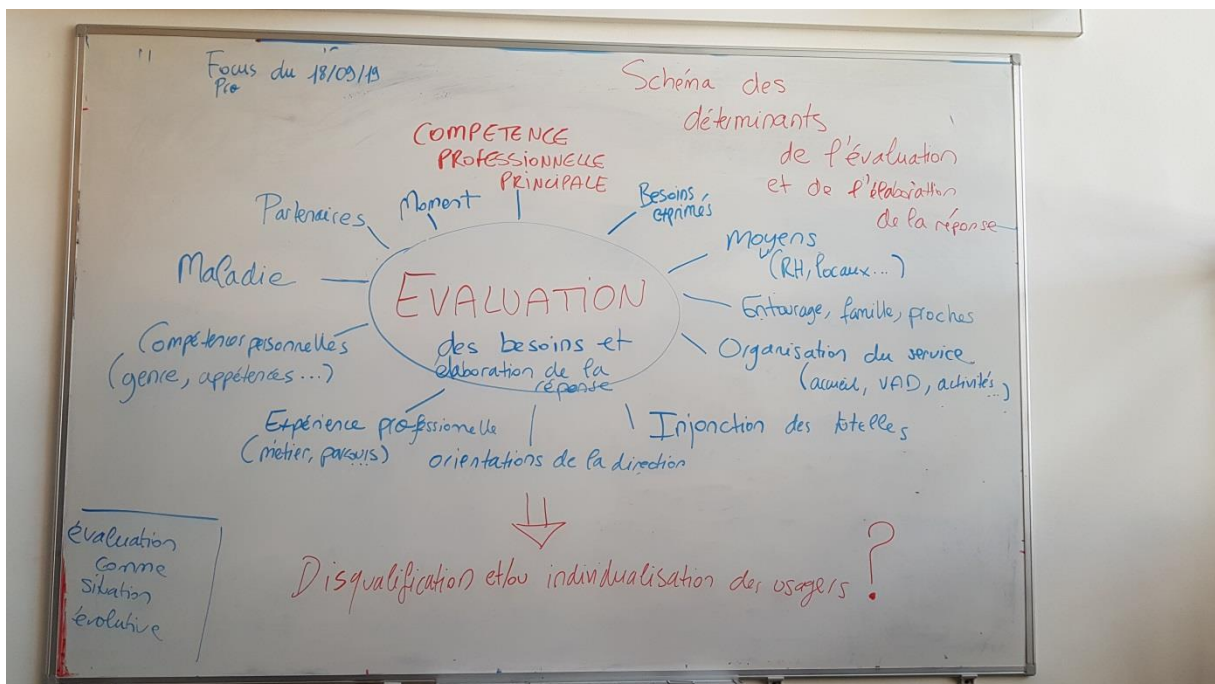 Focus du 18/09/19
Pro
Schéma des
déterminants
de l'évaluation
et de l'élaboration
de la réponse
COMPETENCE
PROFESSIONNELLE
PRINCIPALE
Partenaires
Moment
Besoins
exprimés
Moyens
(RH, locaux...)
Maladie
EVALUATION
des besoins et
élaboration de la
réponse
Entourage, famille, proches
Compétences personnelles
(genre, appétences...)
Organisation du service
(accueil, VAD, activités...)
Expérience professionnelle
(métier, parcours)
orientations de la direction
Injonction des tutelles
Disqualification et/ou individualisation des usagers ?
évaluation
comme
situation
évolutive